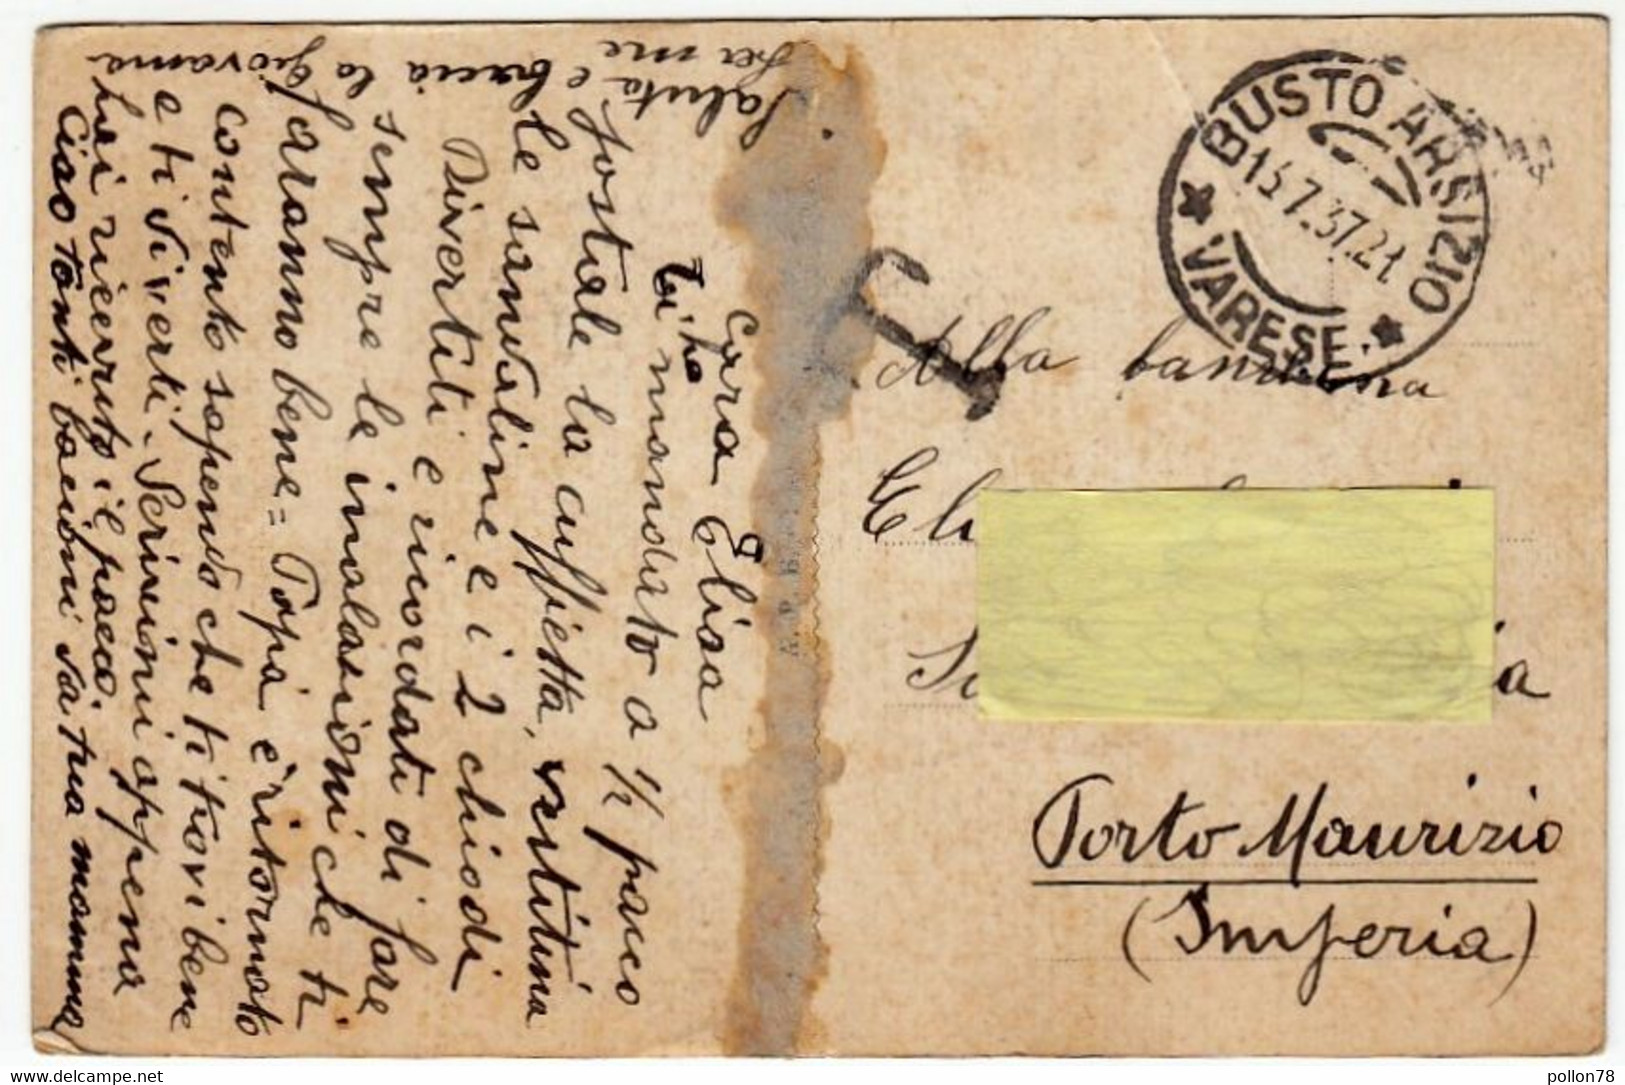 Cara Elisa
Ti ho mandato a 1/2 pacco
postale la cuffietta, vestitina
le sandaline e i 2 chiodi
Divertiti e ricordati di fare
sempre le inalasioni che ti
faranno bene = Papà è ritornato
contento sapendo che ti trovi bene
e ti diverti. Scrivimi appena
hai ricevuto il pacco.
Ciao tanti bacioni da tua mamma
Saluta e bacia la Giovanna
per me
BUSTO ARSIZIO
VARESE
7.37.21
T
Alla bambina
Porto Maurizio
(Imperia)
delcampe.net
pollon78